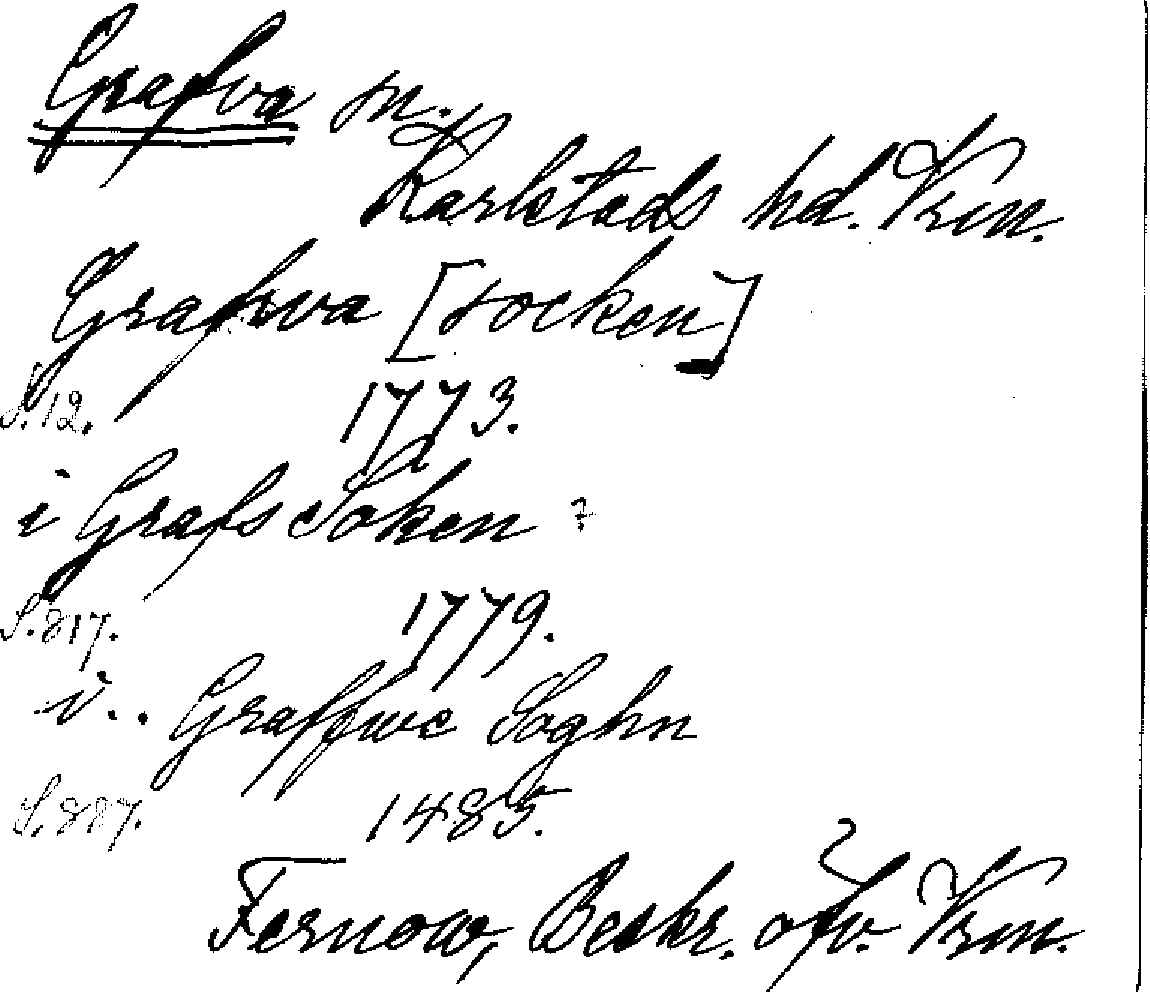 Grafva sn.
Karlstads hd. Vrm.
Grafwa [socken]
S. 12. 1773.
i Grafs Soken
S. 817. 1779.
i.. Graffwe Soghn
S. 887. 1485.
Fernow, Beskr. öfv. Vrm.